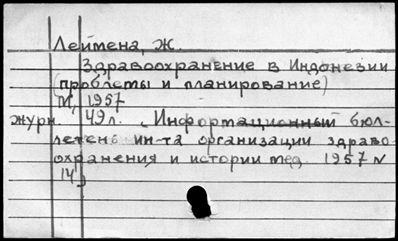 Леймена, Ж.
Здравоохранение в Индонезии
(проблемы и планирование)
М, 1957
журн. 49л. Информационный бюл-
летень ин-та организации здраво-
охранения и истории мед 1957 N
14)